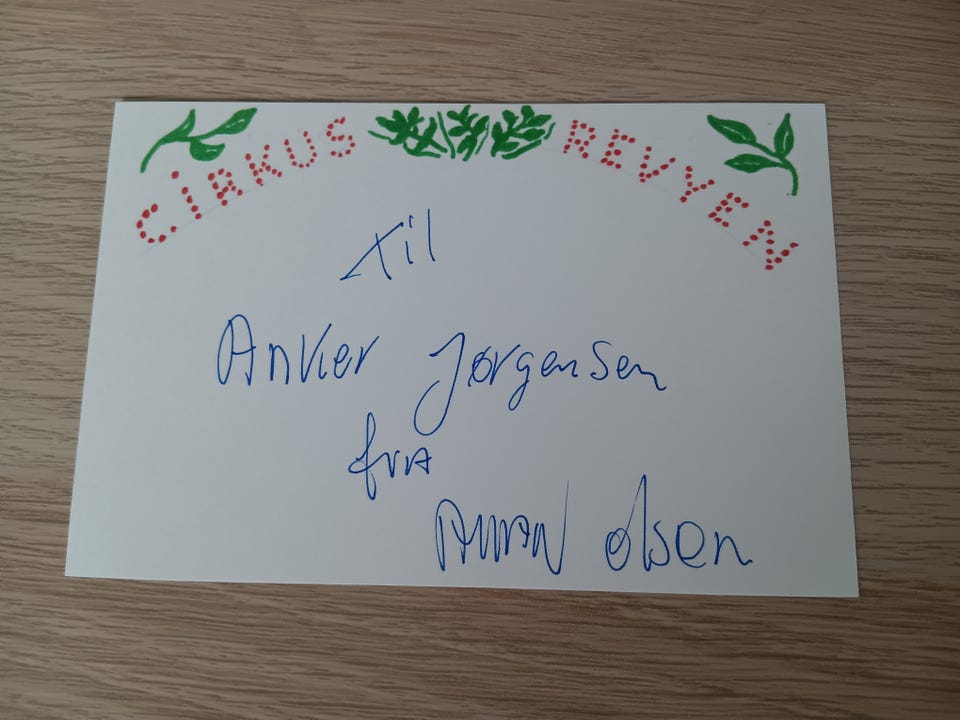 CIRKUS REVYEN
til
Anker Jørgensen
fra
Olsen